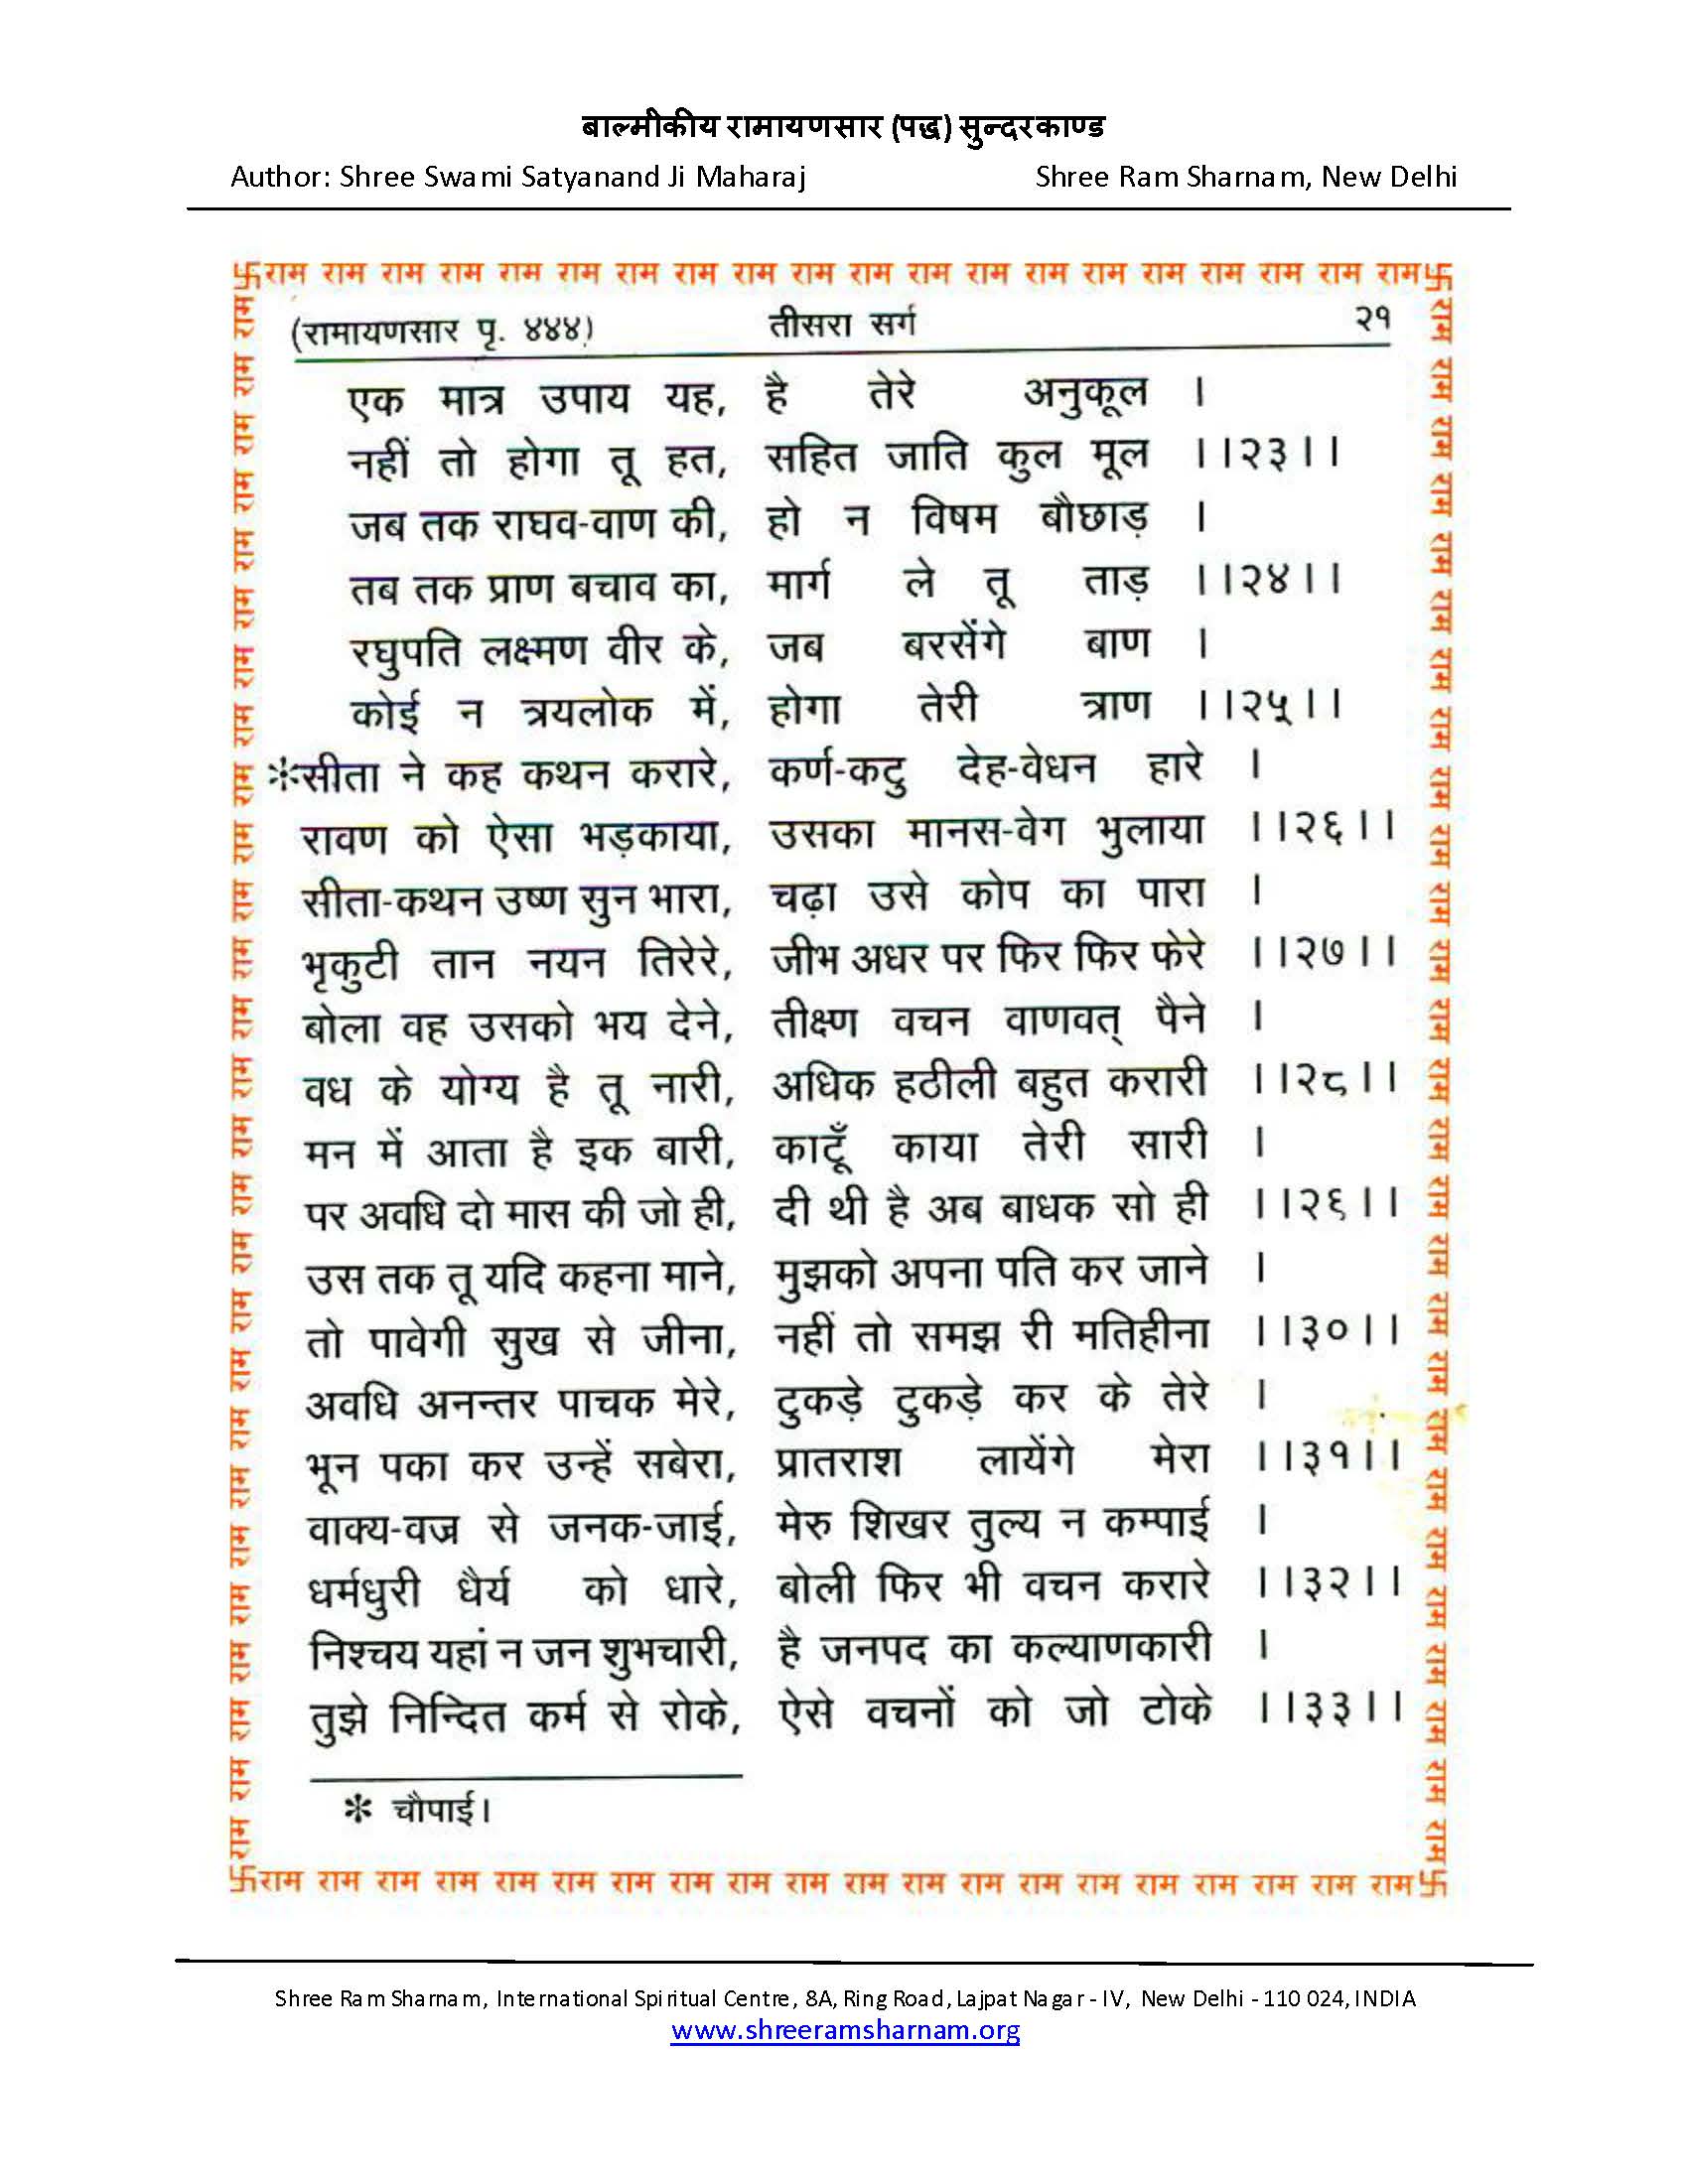 बाल्मीकीय रामायणसार (पद्ध) सुन्दरकाण्ड
Author: Shree Swami Satyanand Ji Maharaj Shree Ram Sharnam, New Delhi
卐राम राम राम राम राम राम राम राम राम राम राम राम राम राम राम राम राम राम राम राम卐
(रामायणसार पृ. ४४४) तीसरा सर्ग २१
एक मात्र उपाय यह, है तेरे अनुकूल ।
नहीं तो होगा तू हत, सहित जाति कुल मूल ।।२३।।
जब तक राघव-वाण की, हो न विषम बौछाड़ ।
तब तक प्राण बचाव का, मार्ग ले तू ताड़ ।।२४।।
रघुपति लक्ष्मण वीर के, जब बरसेंगे बाण ।
कोई न त्रयलोक में, होगा तेरी त्राण ।।२५।।
*सीता ने कह कथन करारे, कर्ण-कटु देह-वेधन हारे ।
रावण को ऐसा भड़काया, उसका मानस-वेग भुलाया ।।२६।।
सीता-कथन उष्ण सुन भारा, चढ़ा उसे कोप का पारा ।
भृकुटी तान नयन तिरेरे, जीभ अधर पर फिर फिर फेरे ।।२७।।
बोला वह उसको भय देने, तीक्ष्ण वचन वाणवत् पैने ।
वध के योग्य है तू नारी, अधिक हठीली बहुत करारी ।।२८।।
मन में आता है इक बारी, काटूँ काया तेरी सारी ।
पर अवधि दो मास की जो ही, दी थी है अब बाधक सो ही ।।२९।।
उस तक तू यदि कहना माने, मुझको अपना पति कर जाने ।
तो पावेगी सुख से जीना, नहीं तो समझ री मतिहीना ।।३०।।
अवधि अनन्तर पाचक मेरे, टुकड़े टुकड़े कर के तेरे ।
भून पका कर उन्हें सबेरा, प्रातराश लायेंगे मेरा ।।३१।।
वाक्य-वज्र से जनक-जाई, मेरु शिखर तुल्य न कम्पाई ।
धर्मधुरी धैर्य को धारे, बोली फिर भी वचन करारे ।।३२।।
निश्चय यहां न जन शुभचारी, है जनपद का कल्याणकारी ।
तुझे निन्दित कर्म से रोके, ऐसे वचनों को जो टोके ।।३३।।
* चौपाई।
卐राम राम राम राम राम राम राम राम राम राम राम राम राम राम राम राम राम राम राम राम卐
Shree Ram Sharnam, International Spiritual Centre, 8A, Ring Road, Lajpat Nagar - IV, New Delhi - 110 024, INDIA
www.shreeramsharnam.org